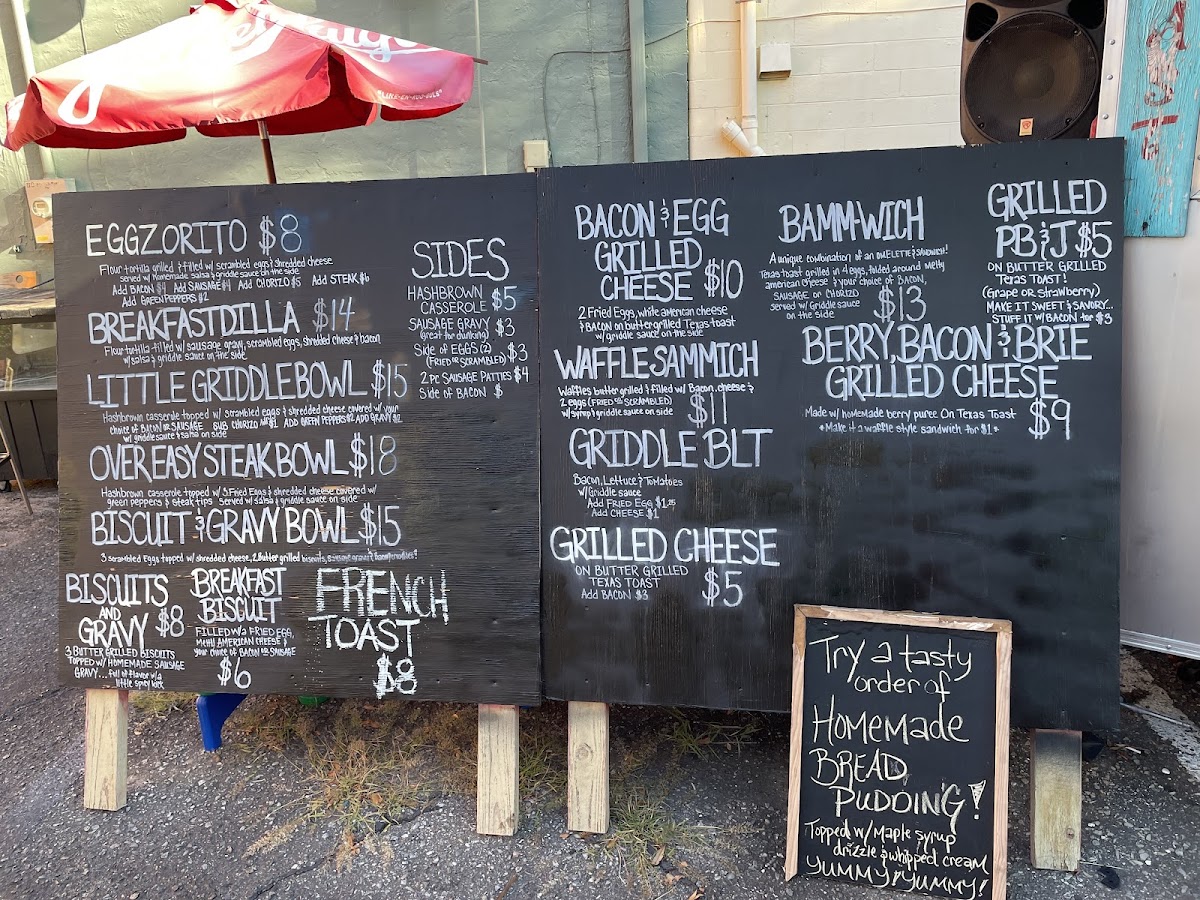 EGGZORITO $8
Flour tortilla grilled & filled w/ scrambled eggs & shredded cheese
served w/ Homemade salsa & griddle sauce on the side
Add BACON $4 Add SAUSAGE $4 Add CHORIZO $5 Add STEAK $6
Add GREEN PEPPERS $2
BREAKFASTDILLA $14
Flour tortilla filled w/ sausage gravy, scrambled eggs, shredded cheese & bacon
w/ salsa & griddle sauce on the side
LITTLE GRIDDLE BOWL $15
Hashbrown casserole topped w/ scrambled eggs & shredded cheese covered w/ your
choice of BACON OR SAUSAGE SUB CHORIZO $1 ADD GREEN PEPPERS $2 ADD GRAVY $2
w/ griddle sauce & salsa on side
OVER EASY STEAK BOWL $18
Hashbrown casserole topped w/ 3 Fried Eggs & shredded cheese covered w/
green peppers & steak tips served w/ salsa & griddle sauce on side
BISCUIT & GRAVY BOWL $15
3 scrambled Eggs topped w/ shredded cheese, 2 Butter grilled biscuits,
BISCUITS
AND
GRAVY $8
3 BUTTER GRILLED BISCUITS
TOPPED w/ HOMEMADE SAUSAGE
GRAVY... Full of flavor w/a
little spicy kick
BREAKFAST
BISCUIT
FILLED w/a FRIED EGG,
Melty AMERICAN CHEESE &
your choice of BACON OR SAUSAGE
$6
FRENCH
TOAST
$8
SIDES
HASHBROWN
CASSEROLE $5
SAUSAGE GRAVY $3
(Great for dunking)
Side of EGGS (2) $3
(FRIED OR SCRAMBLED)
2 pc SAUSAGE PATTIES $4
Side of BACON $
BACON & EGG
GRILLED
CHEESE $10
2 Fried Eggs, white american cheese
& BACON on butter grilled Texas toast
w/ griddle sauce on the side
WAFFLE SAMMICH
Waffles butter grilled & filled w/ Bacon, cheese &
2 eggs (FRIED OR SCRAMBLED)
w/ syrup & griddle sauce on side $11
GRIDDLE BLT
Bacon, Lettuce & Tomatoes
w/ Griddle sauce
Add FRIED EGG $1.25
Add CHEESE $1
GRILLED CHEESE
ON BUTTER GRILLED
TEXAS TOAST $5
Add BACON $3
BAMM-WICH
A unique combination of an OMELETTE & SANDWICH!
Texas toast grilled in 4 eggs, folded around melty
american cheese & your choice of BACON,
SAUSAGE OR CHORIZO
served w/ Griddle sauce
on the side $13
GRILLED
PB & J $5
ON BUTTER GRILLED
Texas TOAST!
(Grape or Strawberry)
MAKE IT SWEET & SAVORY...
STUFF IT w/ BACON for $3
BERRY, BACON & BRIE
GRILLED CHEESE
Made w/ homemade berry puree On Texas Toast $9
*Make it a waffle style sandwich for $1*
Try a tasty
order of
HOMEMADE
BREAD
PUDDING!
Topped w/ Maple syrup
drizzle & whipped cream
YUMMY! YUMMY!